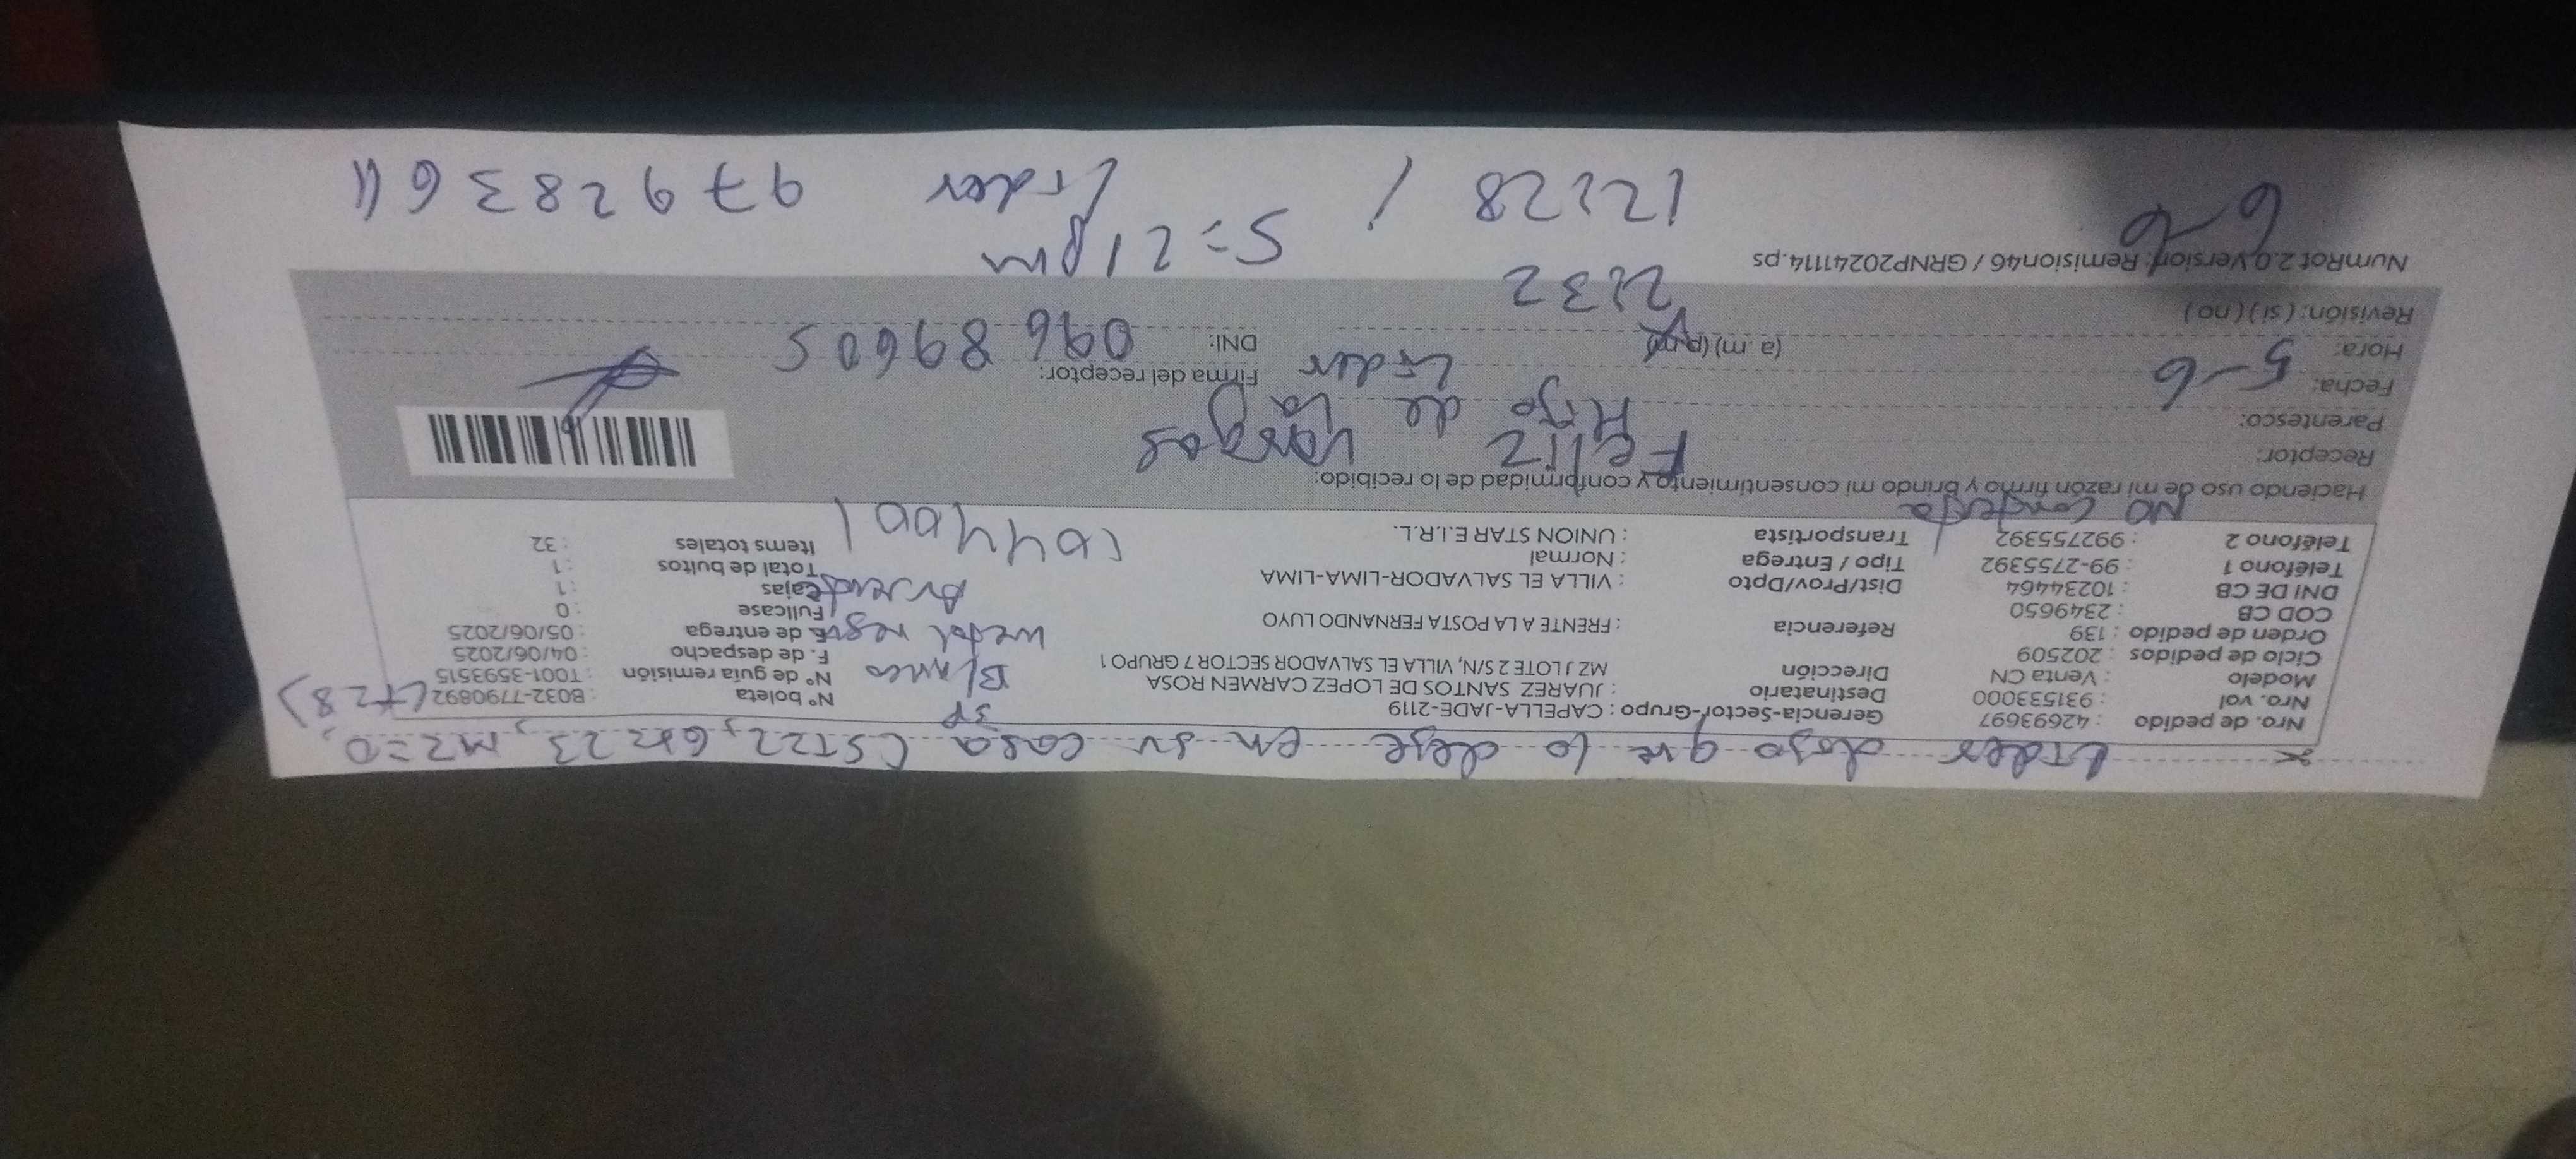 Lider dojo que lo deje en su casa (ST22, GR 23, MZ=O,
LT 28)
Nro. de pedido : 42693697
Nro. vol : 931533000
Modelo : Venta CN
Ciclo de pedidos : 202509
Orden de pedido : 139
COD CB : 2349650
DNI DE CB : 10234464
Teléfono 1 : 99-2755392
Teléfono 2 : 992755392
NO contesta
Gerencia-Sector-Grupo : CAPELLA-JADE-2119
Destinatario : JUAREZ SANTOS DE LOPEZ CARMEN ROSA
Dirección MZ J LOTE 2 S/N, VILLA EL SALVADOR SECTOR 7 GRUPO 1
Referencia : FRENTE A LA POSTA FERNANDO LUYO
Dist/Prov/Dpto : VILLA EL SALVADOR-LIMA-LIMA
Tipo / Entrega : Normal
Transportista : UNION STAR E.I.R.L.
3P
Blanco
metal negra
N° boleta : B032-7790892
N° de guía remisión : T001-3593515
F. de despacho : 04/06/2025
F. de entrega : 05/06/2025
Fullcase : 0
Cajas : 1
Total de bultos : 1
Items totales : 32
Haciendo uso de mi razón firmo y brindo mi consentimiento y conformidad de lo recibido:
Receptor: Feliz Vargas
Parentesco: Hijo de la
Lider
Fecha: 5-6
Hora: (a. m) (p. m)
2132
Revisión: ( si ) ( no )
Firma del receptor:
DNI: 09689605
NumRot 2.0 Version: Remision46 / GRNP20241114.ps
5=21pm
6-6
12128 / Lider 979283611